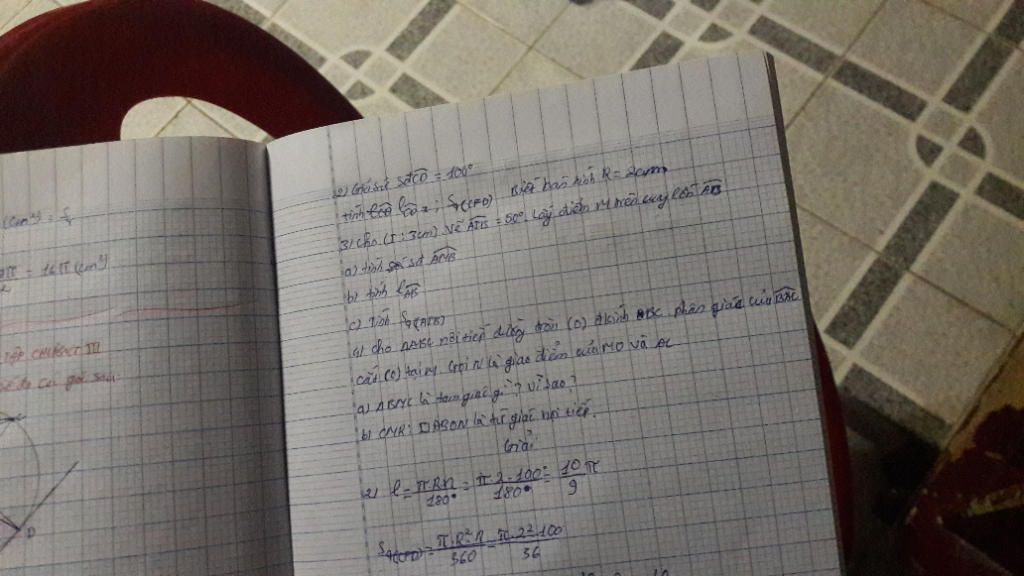 (cm²) =
= 16π (cm²)
TẬP CHƯƠNG III
D
2) Giả sử sđ CD = 100°
tính l CD = ; Sq(COD) Biết bán kính R = 2cm
3) cho (I; 3cm) vẽ AIB = 50°. Lấy điểm M trên cung lớn AB
a) tính số AMB
b) tính l AB
c) Tính Sq(AIB)
4) cho ΔABC nội tiếp đường tròn (O) đkính BC. phân giác của BAC
cắt (O) tại M. Gọi N là giao điểm của MO và AC
a) ΔBMC là tam giác gì? Vì sao?
b) CMR: □ABON là tứ giác nội tiếp.
Giải
2) l = πRn/180° = π.2.100°/180° = 10/9 π
Sq(COD) = π.R².n/360 = π.2².100/36